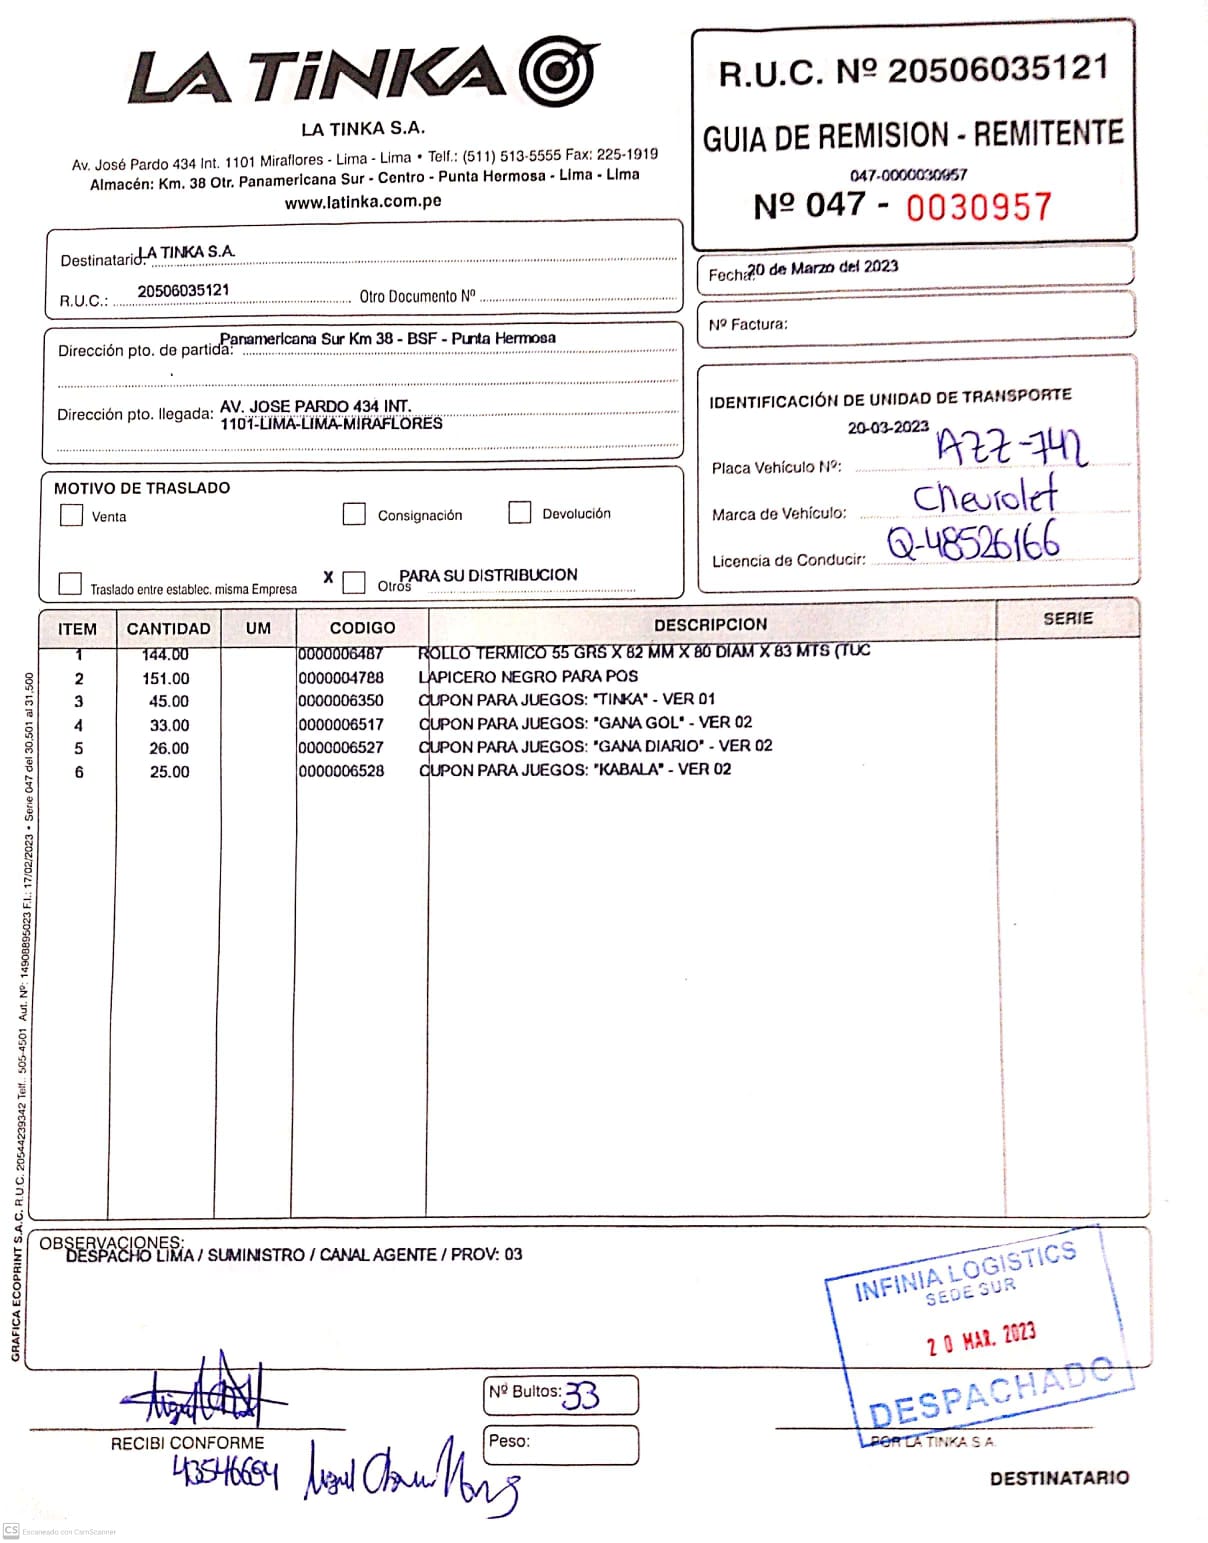 LA TiNKA
LA TINKA S.A.
Av. José Pardo 434 Int. 1101 Miraflores - Lima - Lima • Telf.: (511) 513-5555 Fax: 225-1919
Almacén: Km. 38 Otr. Panamericana Sur - Centro - Punta Hermosa - Lima - Lima
www.latinka.com.pe
R.U.C. Nº 20506035121
GUIA DE REMISION - REMITENTE
047-0000030957
Nº 047 - 0030957
Destinatario: LA TINKA S.A.
R.U.C.: 20506035121 Otro Documento Nº
Fecha: 20 de Marzo del 2023
Nº Factura:
Dirección pto. de partida: Panamericana Sur Km 38 - BSF - Punta Hermosa
Dirección pto. llegada: AV. JOSE PARDO 434 INT.
1101-LIMA-LIMA-MIRAFLORES
IDENTIFICACIÓN DE UNIDAD DE TRANSPORTE
20-03-2023
Placa Vehículo Nº: AZZ-742
Marca de Vehículo: Chevrolet
Licencia de Conducir: Q-48526166
MOTIVO DE TRASLADO
Venta Consignación Devolución
Traslado entre establec. misma Empresa X Otros PARA SU DISTRIBUCION
ITEM CANTIDAD UM CODIGO DESCRIPCION SERIE
1 144.00 0000006487 ROLLO TERMICO 55 GRS X 82 MM X 80 DIAM X 83 MTS (TUC
2 151.00 0000004788 LAPICERO NEGRO PARA POS
3 45.00 0000006350 CUPON PARA JUEGOS: "TINKA" - VER 01
4 33.00 0000006517 CUPON PARA JUEGOS: "GANA GOL" - VER 02
5 26.00 0000006527 CUPON PARA JUEGOS: "GANA DIARIO" - VER 02
6 25.00 0000006528 CUPON PARA JUEGOS: "KABALA" - VER 02
GRAFICA ECOPRINT S.A.C. R.U.C. 20544239342 Telf.. 505-4501 Aut. Nº: 14908895023 F.I.: 17/02/2023 • Serie 047 del 30,501 al 31,500
OBSERVACIONES:
DESPACHO LIMA / SUMINISTRO / CANAL AGENTE / PROV: 03
INFINIA LOGISTICS
SEDE SUR
20 MAR. 2023
DESPACHADO
Nº Bultos: 33
Peso:
RECIBI CONFORME
43546694
POR LA TINKA S.A.
DESTINATARIO
CS Escaneado con CamScanner